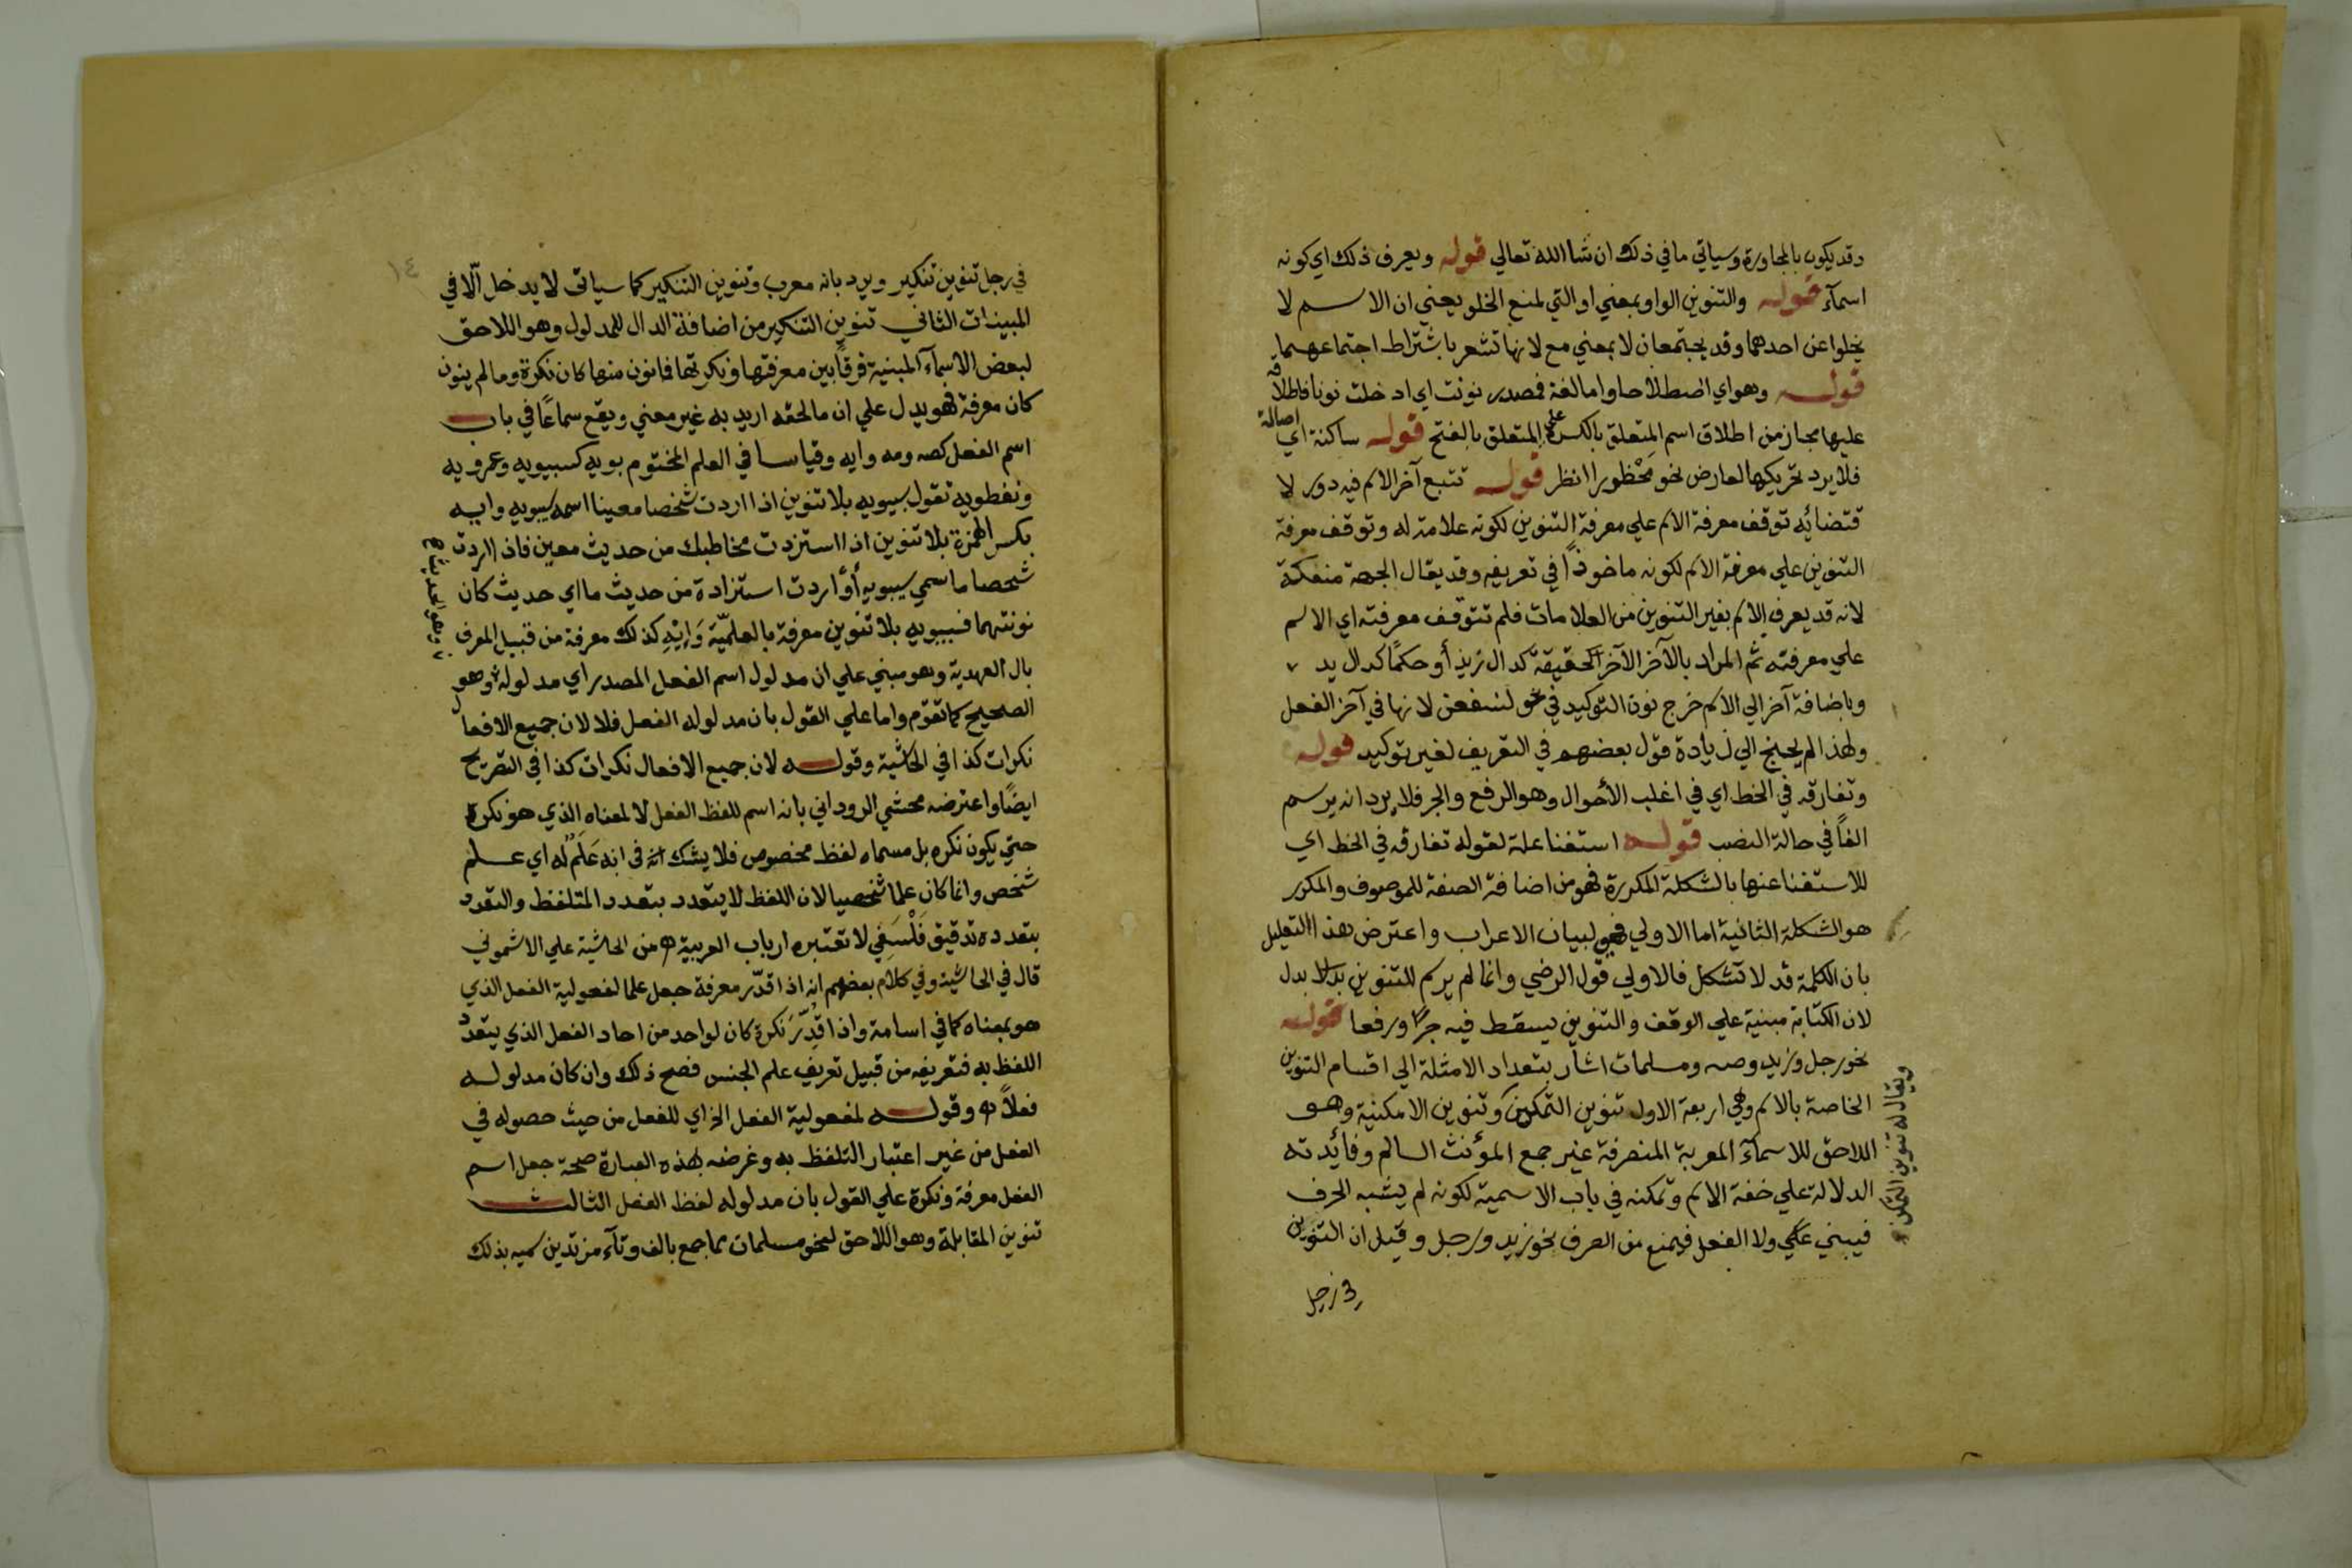 وقد يكون بالمجاورة وسياتي ما في ذلك ان شا الله تعالي قوله ويعرف ذلك اي كونه
اسمآء قوله والتنوين الواو بمعني او التي لمنع الخلو يعني ان الاسم لا
يخلوا عن احدهما وقد يجتمعان لا بمعني مع لانها تشعر باشتراط اجتماعهما
قوله وهو اي اصطلاحا واما لغة فمصدر نونت اي ادخلت نونا فاطلاقه
عليها مجاز من اطلاق اسم المتعلق بالكسر علي المتعلق بالفتح قوله ساكنة اي اصالة
فلا يرد تحريكها لعارض نحو محْظورا انظر قوله تتبع آخر الاسم فيه دور لا
قتضائه توقف معرفة الاسم علي معرفة التنوين لكونه علامة له وتوقف معرفة
التنوين علي معرفة الاسم لكونه ماخوذاً في تعريفه وقد يقال الجهة منفكة
لانه قد يعرف الاسم بغير التنوين من العلامات فلم تتوقف معرفته اي الاسم
علي معرفته ثم المراد بالآخر الآخر الحقيقة كدال زيد أو حكمًا كدال يد
وباضافة آخر الي الاسم خرج نون التوكيد في نحو لنسفعن لانها في آخر الفعل
ولهذا لم يحتج الي زيادة قول بعضهم في التعريف لغير توكيد قوله
وتفارقه في الخط اي في اغلب الأحوال وهو الرفع والجر فلا يرد انه يرسم
الفاً في حالة النصب قوله استغنا علة لقوله تفارقه في الخط اي
للاستغنا عنها بالشكلة المكررة فهو من اضافة الصفة للموصوف والمكرر
هو الشكلة الثانية اما الاولي فهي لبيان الاعراب واعترض هذا التعليل
بان الكلمة قد لا تشكل فالاولي قول الرضي وانما لم يرسم للتنوين بدلا بدل
لان الكتابة مبنية علي الوقف والتنوين يسقط فيه جرًا ورفعا قوله
نحو رجل وزيد وصه ومسلمات اشار بتعداد الامثلة الي اقسام التنوين
الخاصة بالاسم وهي اربعة الاول تنوين التمكين وتنوين الامكنية وهو
اللاحق للاسمآء المعربة المنصرفة غير جمع المؤنث السالم وفائدته
الدلالة علي خفة الاسم وتمكنه في باب الاسمية لكونه لم يشبه الحرف
فيبني علي ولا الفعل فيمنع من الصرف نحو زيد ورجل وقيل ان التنوين
ويقال له تنوين التمكن
في رجل
١٤
في رجل تنوين تنكير ويرد بانه معرب وتنوين التنكير كما سياتي لا يدخل الّا في
المبينات الثاني تنوين التنكير من اضافة الدال للمدلول وهو اللاحق
لبعض الاسمآء المبنية فرقاً بين معرفتها ونكرتها فما نون منها كان نكرة وما لم ينون
كان معرفة فهو يدل علي ان ما لحقه اريد به غير معني ويقع سماعًا في باب
اسم الفعل كصه ومه وايه وقياسا في العلم المختوم بويه كسيبويه وعمرويه
ونفطويه تقول سيبويه بلا تنوين اذا اردت شخصا معينا اسمه سيبويه وايه
بكسر الهمزة بلا تنوين اذا استزدت مخاطبك من حديث معين فاذا اردت
شخصا ما سمي سيبويه أو أردت استزادة من حديث ما اي حديث كان
نونتهما فسيبويه بلا تنوين معرفة بالعلميّة وَإِيْهِ كذلك معرفة من قبيل المعرف
بال العهدية وهو مبني علي ان مدلول اسم الفعل المصدر اي مدلوله وهو
الصحيح كما تقوم واما علي القول بان مدلوله الفعل فلا لان جميع الافعال
نكرات كذا في الحاشية وقوله لان جميع الافعال نكرات كذا في التصريح
ايضًا واعترضه محشي الروداني بانه اسم للفظ الفعل لا لمعناه الذي هو نكرة
حتي يكون نكره بل مسماه لفظ مخصوص فلا يشك انه في انه عَلَمٌ له اي علم
شخص وانما كان علما شخصيا لان اللفظ لا يتعدد بتعدد المتلفظ والتعدد
بتعدده تدقيق فَلْسَفِي لا تعتبره ارباب العربية ه من الحاشية علي الاشموني
قال في الحاشية وفي كلام بعضهم انه اذا قدّر معرفة جعل علما لفعولية الفعل الذي
هو بمعناه كما في اسامة واذا قُدِّرَ نكرة كان لواحد من احاد الفعل الذي يتعدد
اللفظ به فتعريفه من قبيل تعريف علم الجنس فصح ذلك وان كان مدلوله
فعلاً ه وقوله لمفعولية الفعل الخ اي للفعل من حيث حصوله في
الفعل من غير اعتبار التلفظ به وغرضه بهذه العبارة صحة جعل اسم
الفعل معرفة ونكرة علي القول بان مدلوله لفظ الفعل الثالث
تنوين المقابلة وهو اللاحق لنحو مسلمات مما جمع بالف وتآء مزيدتين سميه بذلك